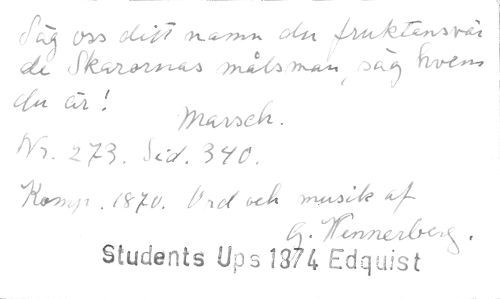 Säg oss ditt namn du fruktansvär
de Skarornas målsman, säg hvem
du är!
Marsch.
Nr. 273. Sid. 340.
Komp. 1870. Ord och musik af
G. Wennerberg.
Students Ups 1874 Edquist